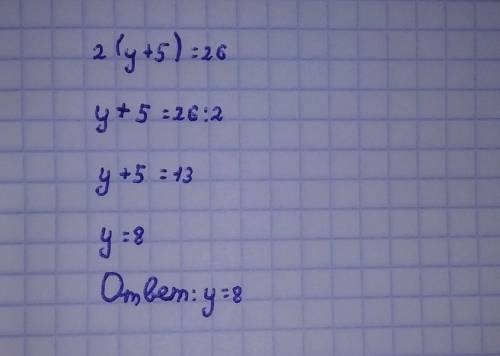 2(y+5)=26
y+5=26:2
y+5=13
y=8
Ответ: y=8